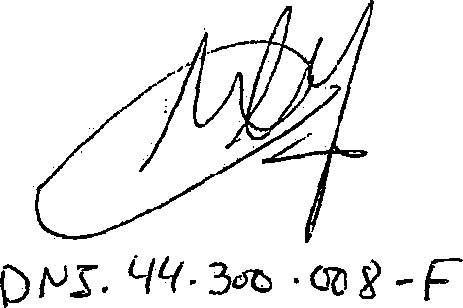 DNI. 44.300.008-F